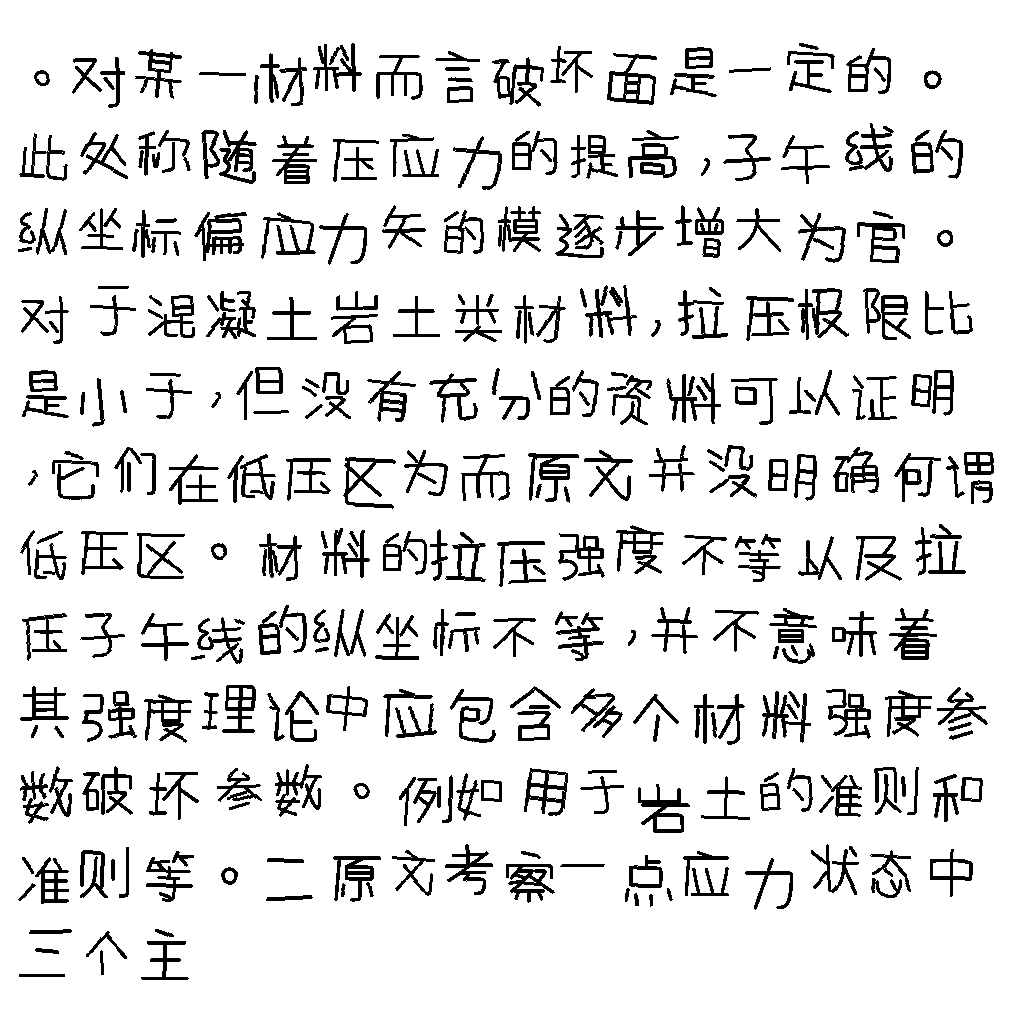 。对某一材料而言破坏面是一定的。
此处称随着压应力的提高,子午线的
纵坐标偏应力矢的模逐步增大为官。
对于混凝土岩土类材料,拉压极限比
是小于,但没有充分的资料可以证明
,它们在低压区为而原文并没明确何谓
低压区。材料的拉压强度不等以及拉
压子午线的纵坐标不等,并不意味着
其强度理论中应包含多个材料强度参
数破坏参数。例如用于岩土的准则和
准则等。二原文考察一点应力状态中
三个主